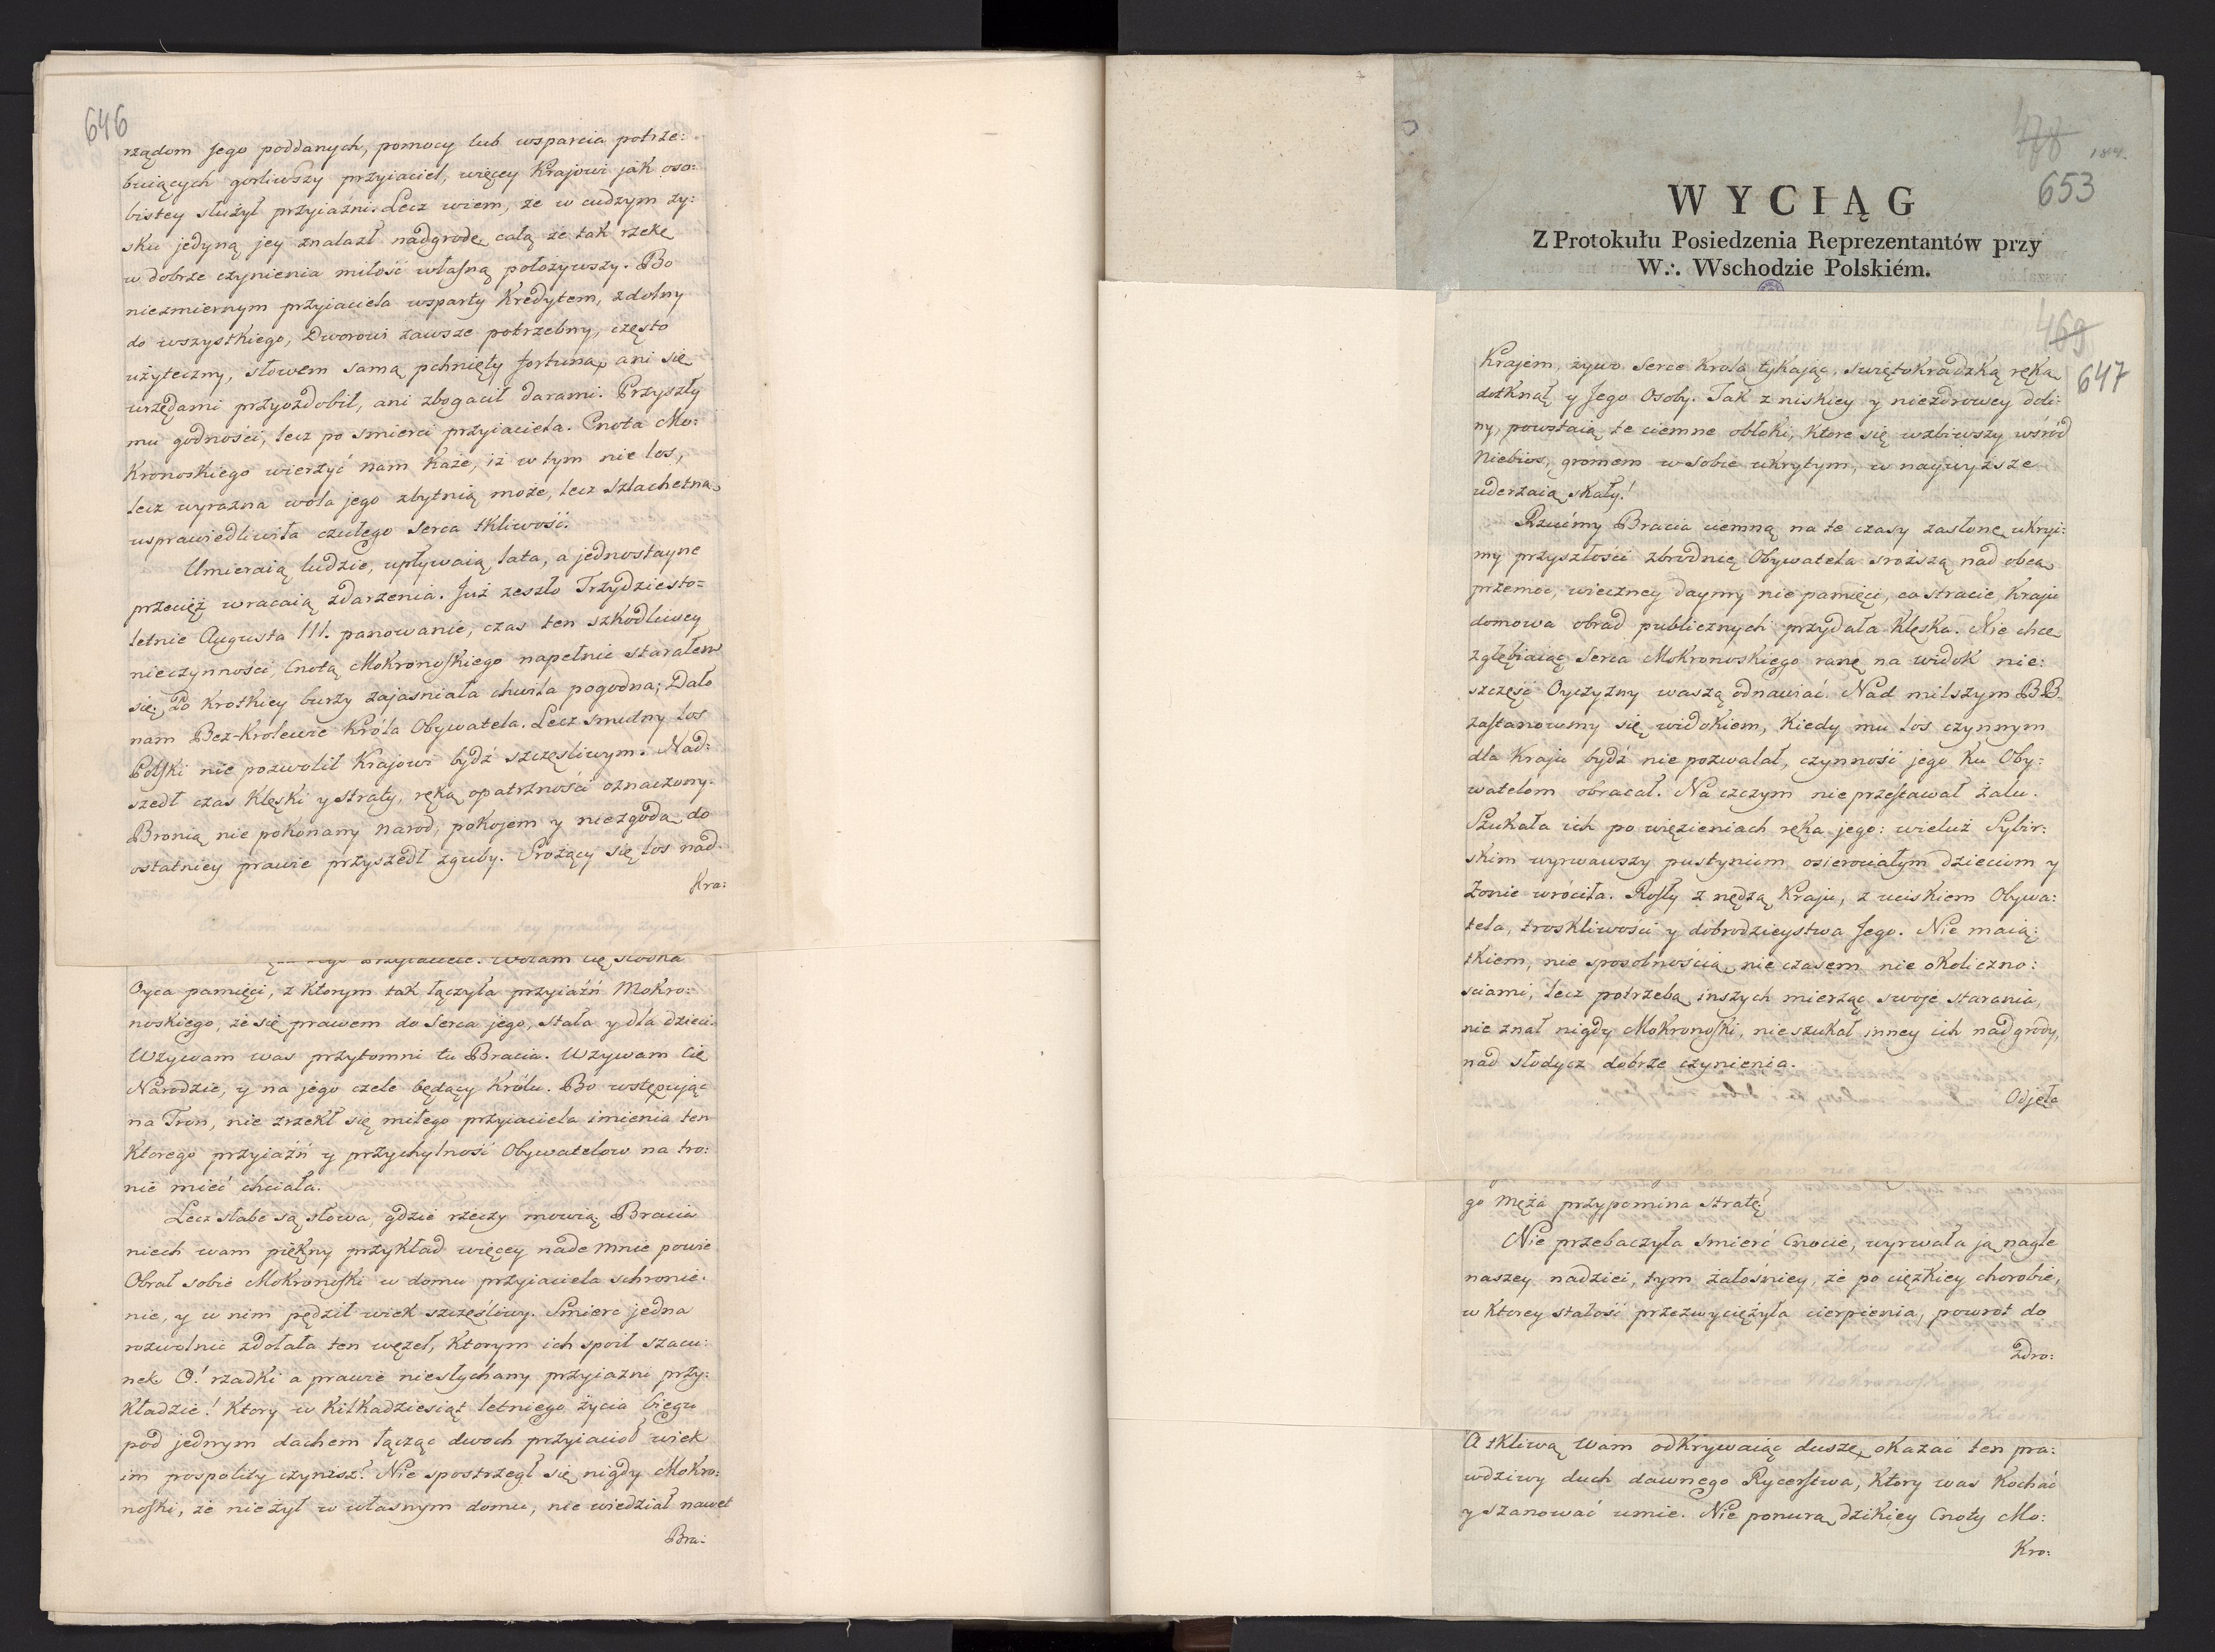 646
rządom Jego poddanych, pomocy lub wsparcia potrze:
buiących gorliwszy przyiaciel, więcey Krajowi jak oso:
bistey służył przyiaźni. Lecz wiem, że w cudzym zy:
sku jedyną jey znalazł nadgrodę, całą że tak rzekę
w dobrze czynienia miłość własną położywszy. Bo
niezmiernym przyiaciela wsparty Kredytem, zdolny
do wszystkiego, Dworowi zawsze potrzebny, często
użyteczny, słowem samą pchnięty fortuną, ani się
urzędami przyozdobił, ani zbogacił darami. Przyszły
mu godności, lecz po smierci przyiaciela. Cnota Mo:
Kronoskiego wierzyć nam Każe, iż w tym nie los,
lecz wyrazna wola jego zbytnią może, lecz szlachetną
usprawiedliwiła czułego serca tkliwość.
Umieraią ludzie, upływaią lata, a jednostayne
przecięż wracaią zdarzenia. Już zeszło Trzydziesto=
letnie Augusta III. panowanie, czas ten szkodliwey
nieczynności, Cnotą Mokronoskiego napełnić starałem
się. Po Krotkiey burzy zajasniała chwila pogodna; Dało
nam Bez-Krolewie Króla Obywatela. Lecz smutny los
Polski nie pozwolił Krajowi bydź szczęsliwym. Nad:
szedł czas Klęski y straty, ręką opatrzności oznaczony.
Bronią nie pokonany narod, pokojem y niezgodą do
ostatniey prawie przyszedł zguby. Srożący się los nad
Kra:
przyiaciele. Wołam cię słodka
Oyca pamięci, z Ktorym tak łączyła przyiaźń Mokro:
noskiego, że się prawem do Serca jego, stała y dla dzieci.
Wzywam was przytomni tu Bracia. Wzywam Cię
Narodzie, y na jego czele będący Królu. Bo wstępując
na Tron, nie zrzekł się miłego przyiaciela imienia ten
Ktorego przyiaźń y przychylność Obywatelow na tro:
nie mieć chciała.
Lecz słabe są słowa, gdzie rzeczy mowią; Bracia
niech wam piękny przykład więcey nade mnie powie
Obrał sobie Mokronoski w domu przyiaciela schronie.
nie, y w nim pędził wiek szczęśliwy. Smierć jedna
rozwolnić zdołała ten węzeł, Ktorym ich spoił szacu:
nek O! rzadki a prawie niesłychany przyiazni przy:
Kładzie! Ktory w Kilkadziesiąt letniego życia biegu
pod jednym dachem łącząc dwoch przyiacioł wiek
im pospolity czynisz! Nie spostrzegł się nigdy Mokro:
noski, że nie żył w własnym domu, nie wiedział nawet
Bra:
478
184.
653
WYCIĄG
Z Protokułu Posiedzenia Reprezentantów przy
W∴ Wschodzie Polskiém.
469
647
Krajem, żywo serce Krola tykając, swiętokradzką ręką
dotknął y Jego Osoby. Tak z niskiey y niezdrowey doli:
ny, powstaią te ciemne obłoki, Ktore się wzbiwszy wśród
Niebios, gromem w sobie ukrytym, w naywyższe
uderzaią skały!
Rzućmy Bracia ciemną na te czasy zasłonę, ukryi:
my przyszłości zbrodnię Obywatela sroższą nad obcą
przemoc, wieczney daymy nie pamięci, co stracie Kraju
domowa obrad publicznych przydała Klęska. Nie chcę
zgłębiaiąc Serca Mokronoskiego ranę na widok nie:
szczęść Oyczyzny waszą odnawiać. Nad milszym BB.
zastanowmy się widokiem, Kiedy mu los czynnym
dla Kraju bydź nie pozwalał, czynność jego Ku Oby:
watelom obracał. Na czczym nie przestawał żalu.
Szukała ich po więzieniach ręka jego: wieluż Sybir:
skim wyrwawszy pustyniom osierociałym dzieciom y
Żonie wróciła. Rosły z nędzą Kraju, z uciskiem Obywa:
tela, troskliwości y dobrodzieystwa Jego. Nie maią:
tkiem, nie sposobnością, nie czasem nie okoliczno:
sciami, lecz potrzebą inszych mierząc swoje starania,
nie znał nigdy Mokronoski, nie szukał inney ich nadgrody,
nad słodycz dobrze czynienia.
Odjęła
go Męża przypomina stratę!
Nie przebaczyła Smierć Cnocie, wyrwała ją nagle
naszey nadziei, tym żałośniey, że po ciężkiey chorobie,
w Ktorey stałość przezwyciężyła cierpienia, powrot do
Zdro:
A tkliwą Wam odkrywaiąc duszę, okazać ten pra:
wdziwy duch dawnego Rycerstwa, Ktory was Kochać
y szanować umie. Nie ponurą dzikiey Cnoty Mo:
Kro: